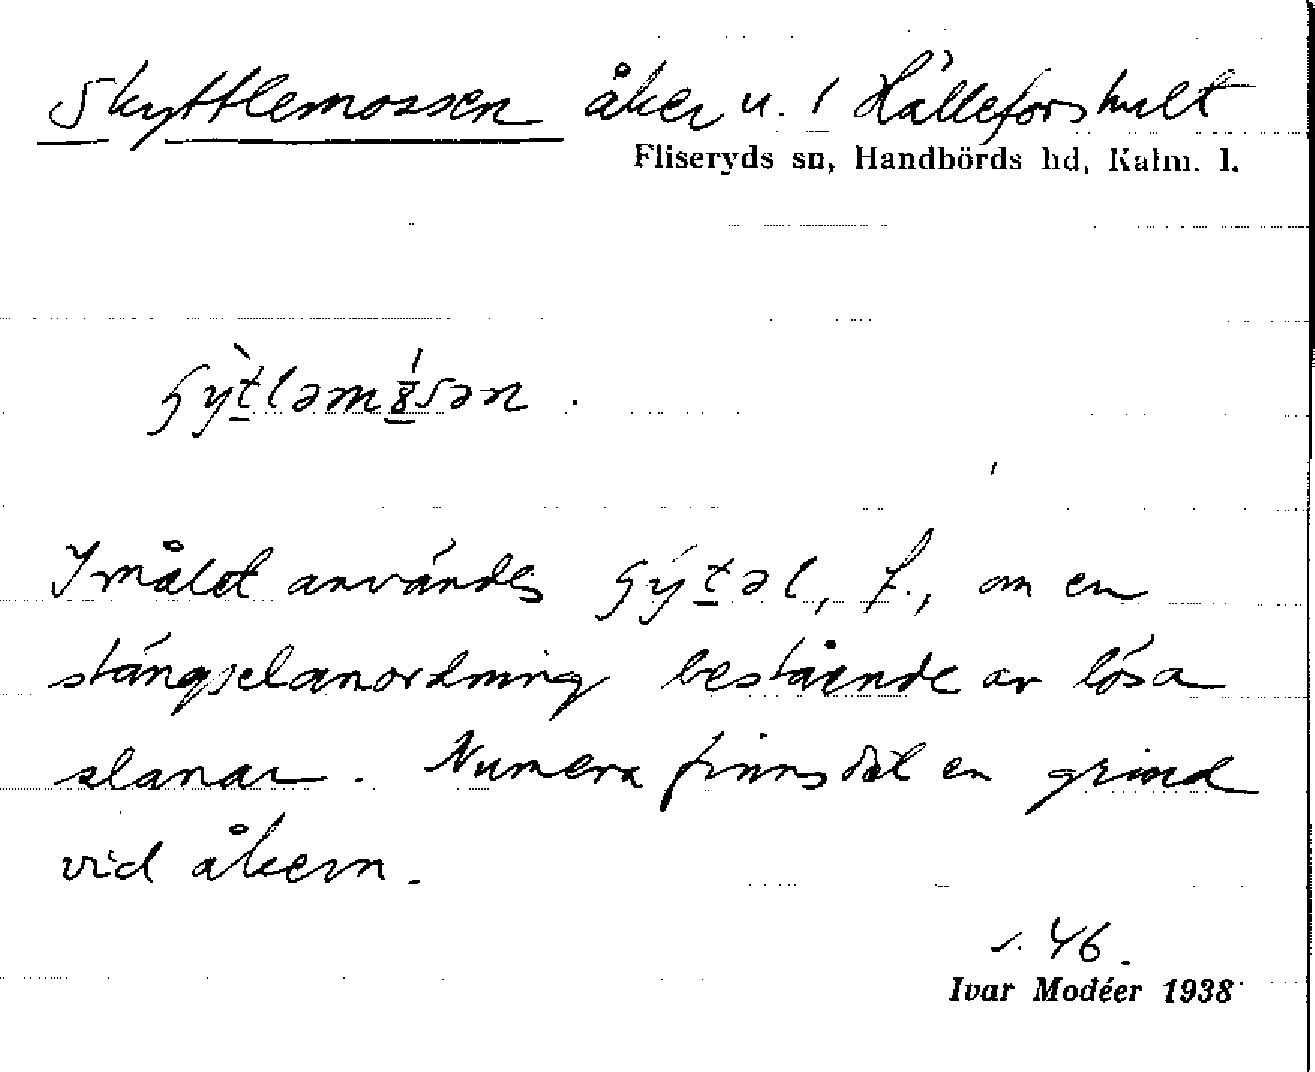 Skyttlemossen åker u. 1 Hälleforshult
Fliseryds sn, Handbörds hd, Kalm. l.
I målet användes f., om en
stängselanordning bestående av lösa
slanar. Numera finns det en grind
vid åkern.
s. 46.
Ivar Modéer 1938